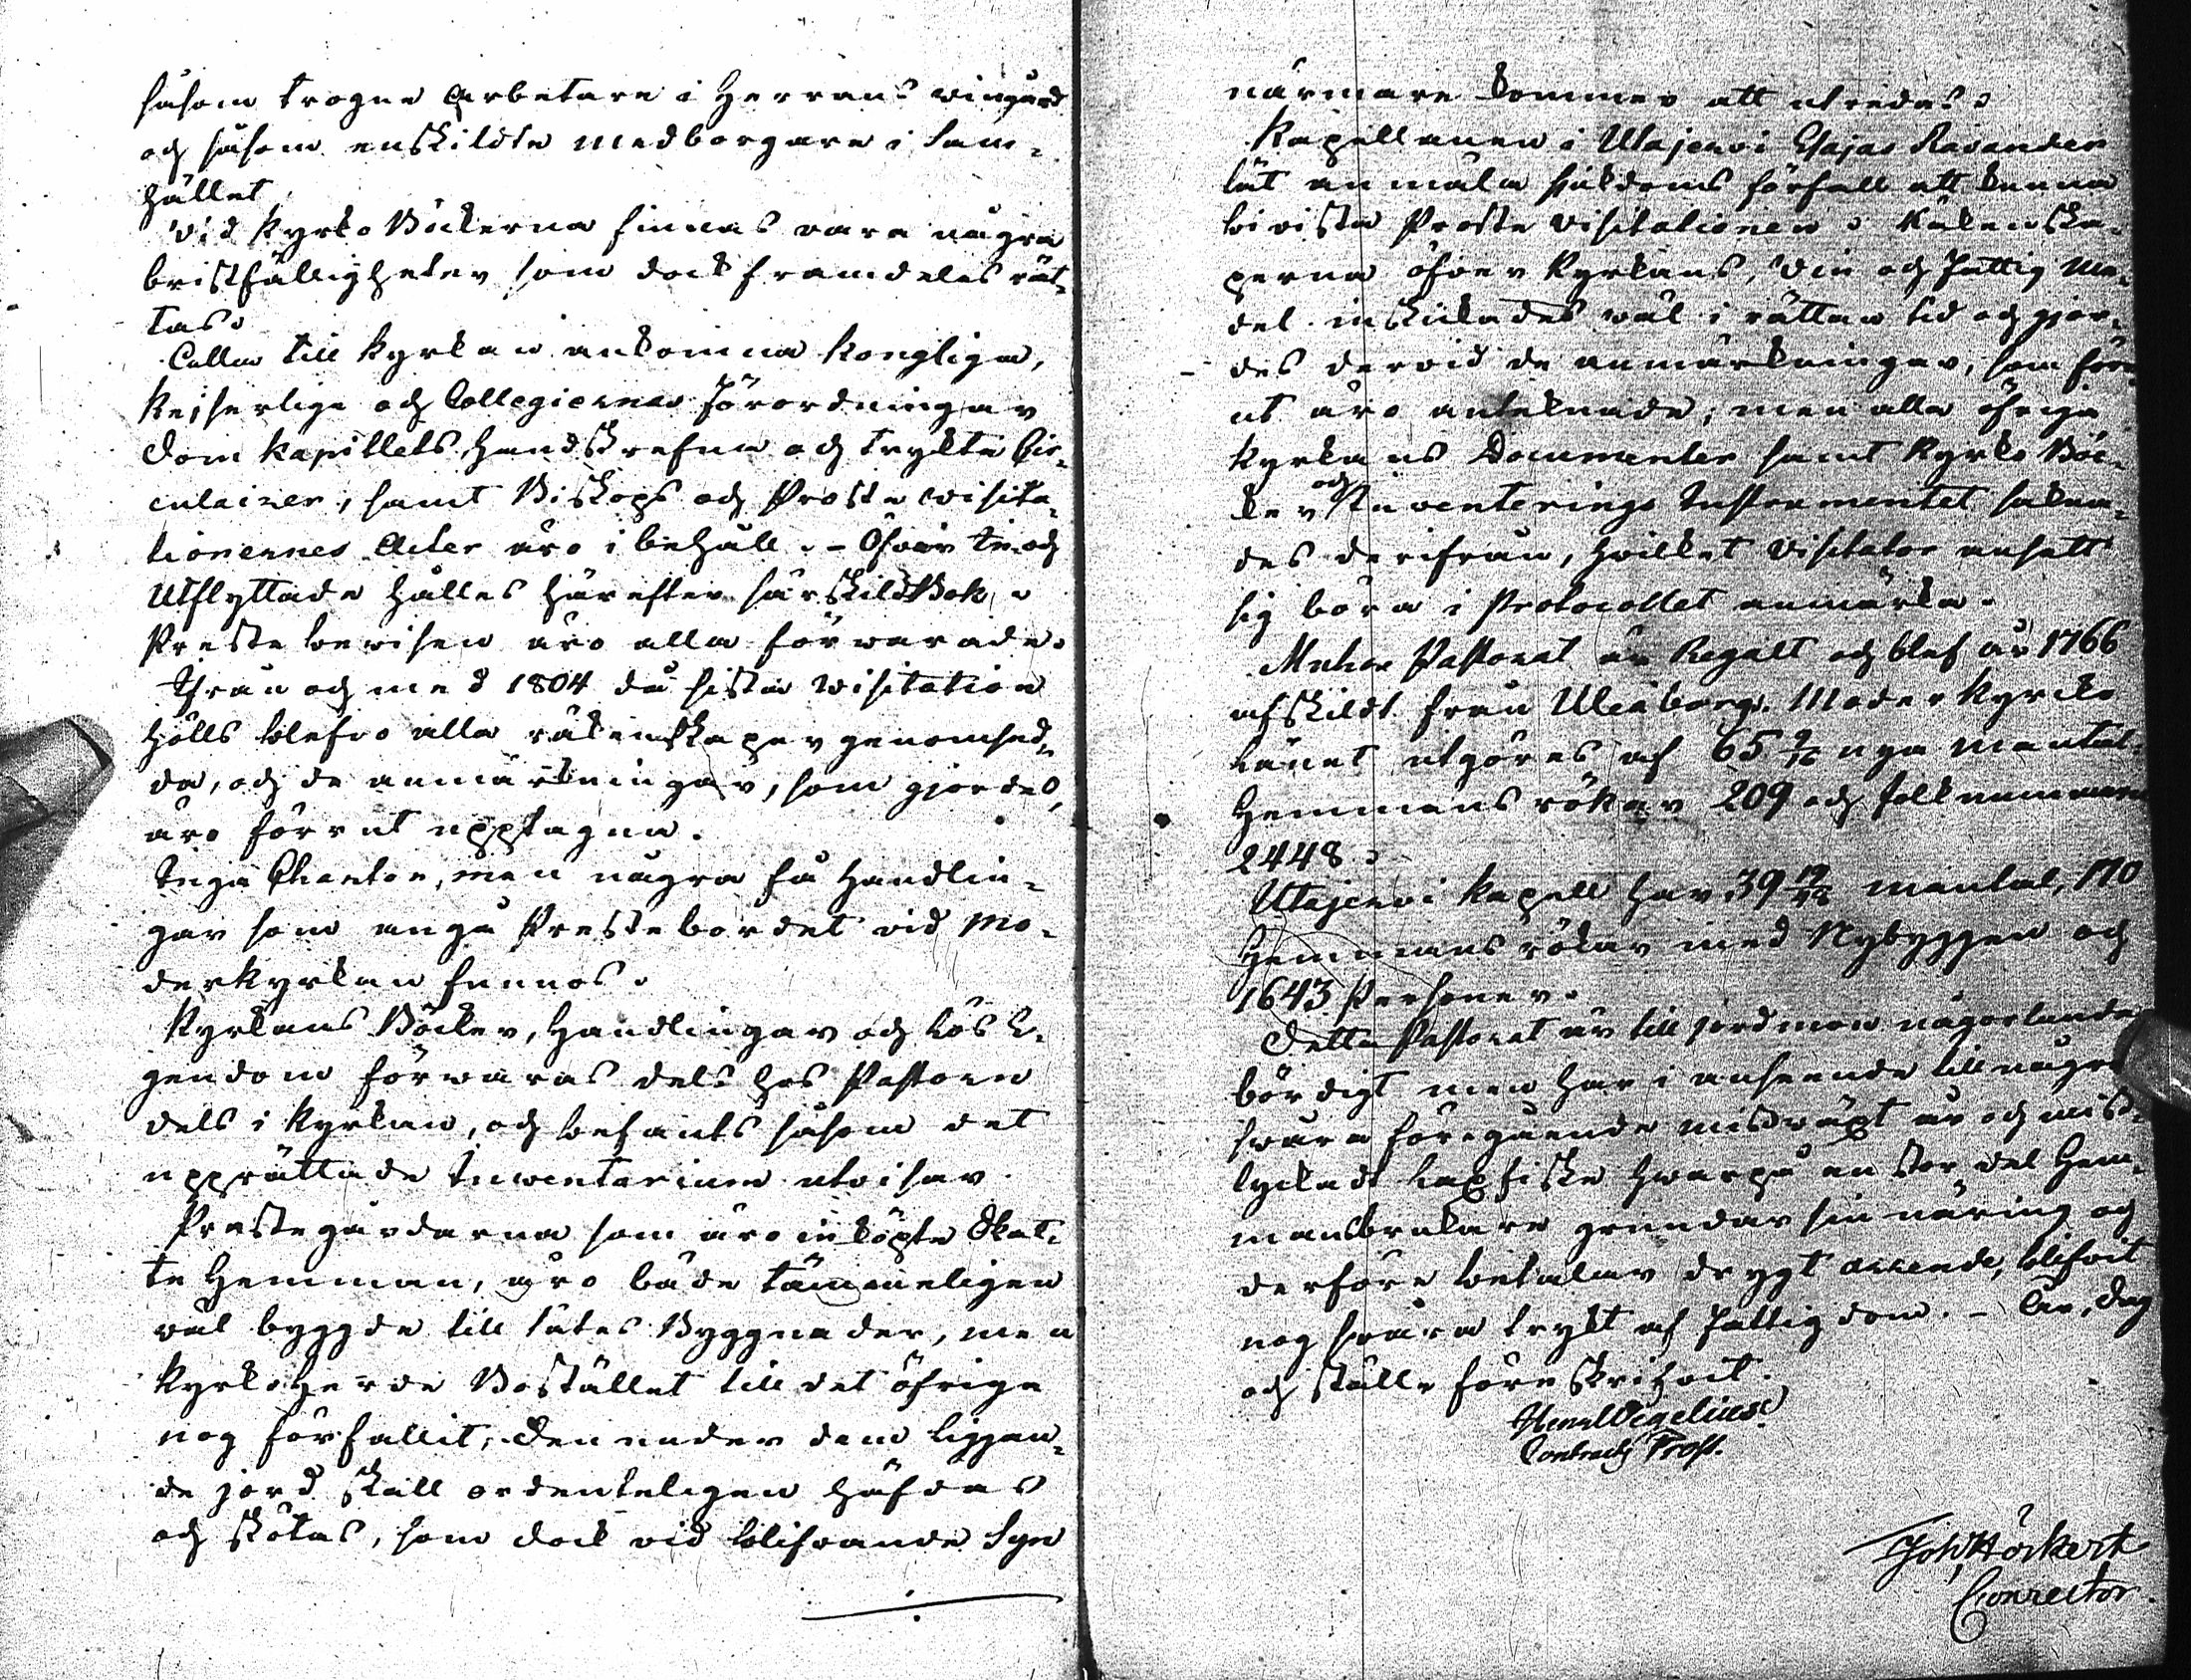 såsom trogne Arbetare i Herrans wingård
och såsom enskildte medborgare i Sam-
hället
Vid Kyrko Böckerna finnas vara några
bristfälligheter som dock framdeles rät-
tas.
Alla till Kyrkan ankomna Kongliga,
Kejserliga och Collegiernas Förordningar
Dom Kapitlets Handskrefna och tryckta Cir-
culairer, samt Biskops och Proste wisita-
tionernes Acter äro i behåll. - Öfver In och
Utflyttade hålles härefter särskild Bok.
Preste bewisen äro alla förwarade.
Ifrån och med 1804 då sista wisitation
hölls blefvo alla räkenskaper genomsed-
da, och de anmärkningar, som gjordes,
äro förrut upptagna.
Inga Chartor, men några få Handlin-
gar som angå Prestebordet vid Mo-
derkyrkan funnos.
Kyrkans Böcker, Handlingar och Lös E-
gendom förwaras dels hos Pastorn
dels i Kyrkan, och befants såsom det
upprättade Inwentarium utvisar.
Prestegårdarna som äro inköpte Skat-
te Hemman, äro både tämmeligen
väl byggde till såtes Byggnader, men
Kyrkoherde Bostället till det öfriga
nog förfallit, Den under dem liggan-
de jord skall ordenteligen häfdas
och skötas, som dock vid blifvande Syn
närmare kommer att utredas.
Kapellanen i Utajervi Esajas Ravander
lät anmäla sjukdoms förfall att kunna
bivista Proste Visitationen. Räkenska-
perna öfver Kyrkans, Vin och Fattig Me-
del inskickades wäl i rättan tid och gjor-
des dervid de anmärkningar, som för-
ut äro antecknade, men alla öfriga
Kyrkans Documenter samt Kyrko Böc-
ker och Inventerings Instrumentet sakna-
des derifrån, hvilket Visitator ansett
sig böra i Protocollet anmärka.
Muhos Pastorat är Regalt och blef år 1766
afskildt från Uleåborg. Moderkyrko
Länet utgöres af 65 9/16 nya mantal.
Hemmans rökar 209 och folknummern
2448.
Utajervi Kapell har 39 19/48 mantal, 170
Hemmans rökar med Nybyggen och
1643 Personer.
Detta Pastorat är till jordmon någorlunda
bördigt men har i anseende till några
svåra föregående misswäxt år och miss-
lyckadt Laxfiske hwarpå en stor del Hem-
mansbrukare grundar sin näring och
derföre betalar drygt arrende, blifvit
nog svåra tryckt af Fattigdom. - År, dag
och ställe föreskrifvit.
Henr Wegelius
Contracts Prost.
Joh Höckert
Conrector.